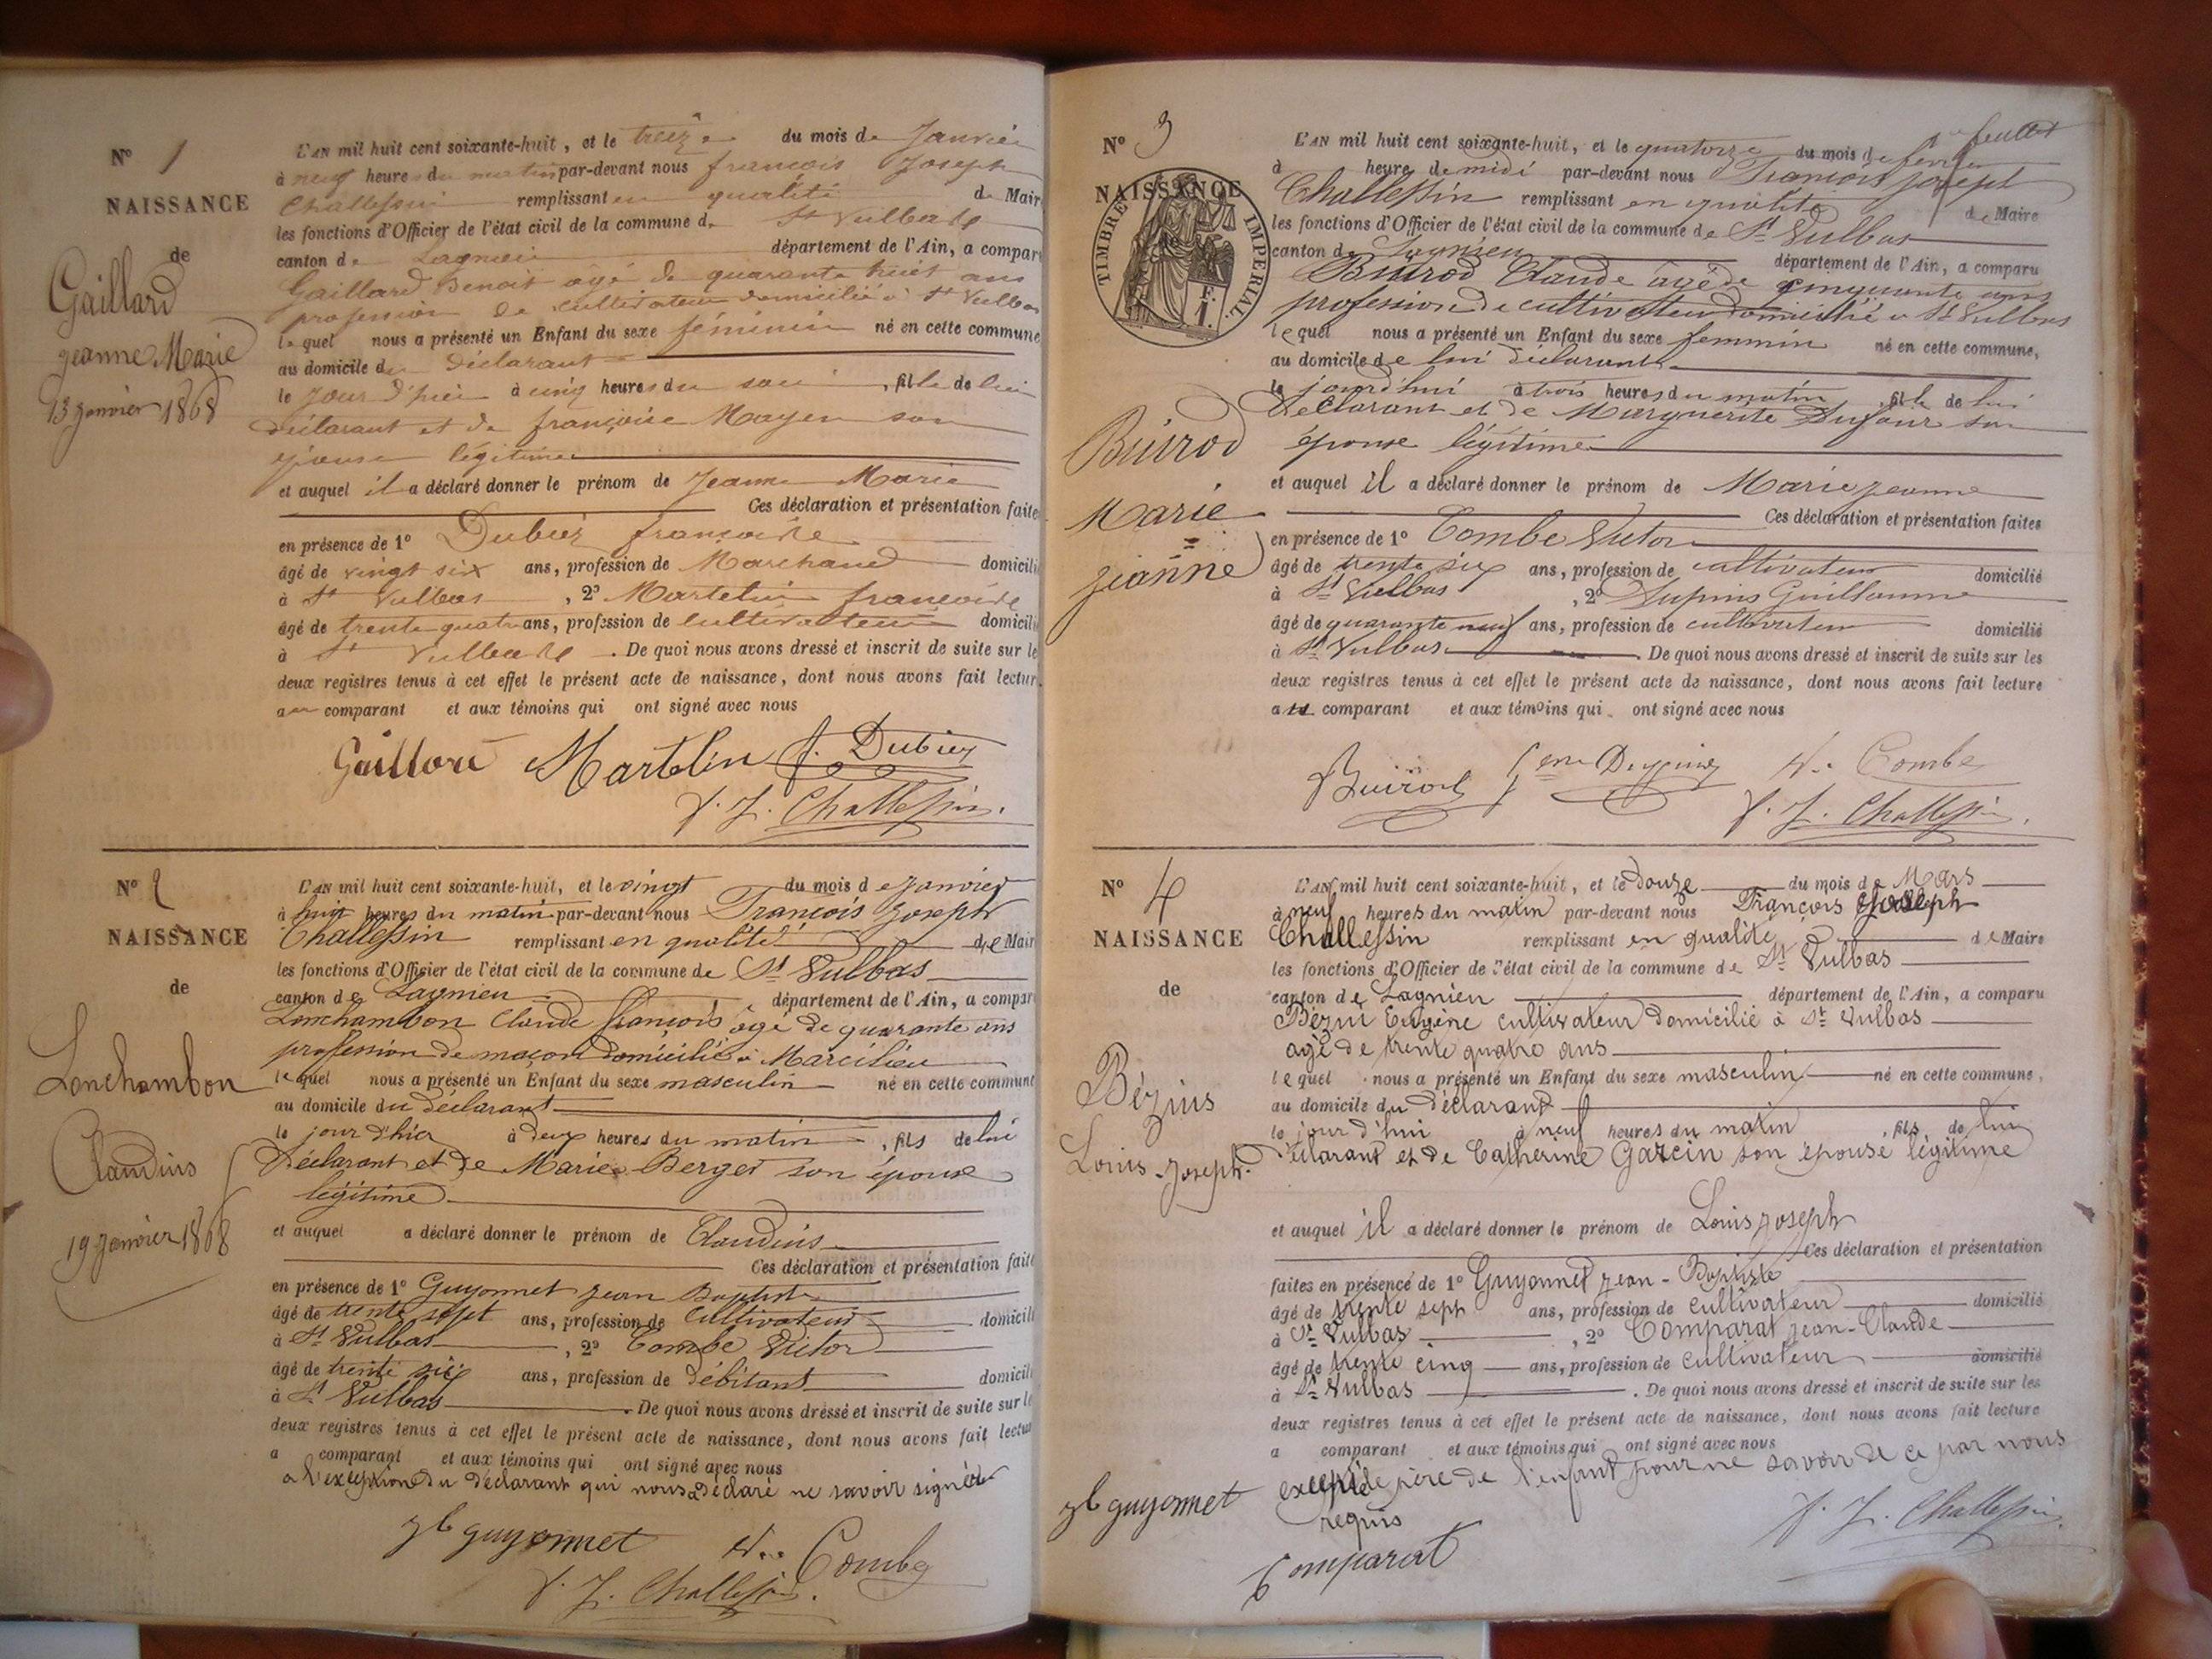 N° 1
NAISSANCE
de
Gaillard
Jeanne Marie
13 Janvier 1868
L'AN mil huit cent soixante-huit, et le treize du mois de Janvier
à neuf heures du matin par-devant nous françois Joseph
Challessin remplissant en qualité de Mair
les fonctions d'Officier de l'état civil de la commune de St Vulbas
canton de Lagnieu département de l'Ain, a compar
Gaillard Benoit agé de quarante huit ans
profession de cultivateur domicilié à St Vulbas
lequel nous a présenté un Enfant du sexe féminin né en cette commune
au domicile du déclarant
le jour d'hier à cinq heures du soir, fille de lui
déclarant et de françoise Mayen son
épouse légitime
et auquel il a déclaré donner le prénom de Jeanne Marie
Ces déclaration et présentation faite
en présence de 1° Dubiez françois
âgé de vingt six ans, profession de Marchand domicili
à St Vulbas, 2° Martelin françois
âgé de trente quatre ans, profession de cultivateur domicili
à St Vulbas. De quoi nous avons dressé et inscrit de suite sur le
deux registres tenus à cet effet le présent acte de naissance, dont nous avons fait lectur
au comparant et aux témoins qui ont signé avec nous
Gaillard Martelin f. Dubiez
f. J. Challessin.
N° 2
NAISSANCE
de
Lonchambon
Claudius
19 Janvier 1868
L'AN mil huit cent soixante-huit, et le vingt du mois de Janvier
à huit heures du matin par-devant nous François Joseph
Challessin remplissant en qualité de Mair
les fonctions d'Officier de l'état civil de la commune de St Vulbas
canton de Lagnieu département de l'Ain, a compar
Lonchambon Claude françois âgé de quarante ans
profession de maçon domicilié à Marcilieu
lequel nous a présenté un Enfant du sexe masculin né en cette commune
au domicile du déclarant
le jour d'hier à deux heures du matin, fils de lui
déclarant et de Marie Berger son épouse
légitime
et auquel a déclaré donner le prénom de Claudius
Ces déclaration et présentation faite
en présence de 1° Guyonnet Jean Baptiste
âgé de trente sept ans, profession de Cultivateur domicili
à St Vulbas, 2° Combe Victor
âgé de trente six ans, profession de débitant domicili
à St Vulbas. De quoi nous avons dressé et inscrit de suite sur le
deux registres tenus à cet effet le présent acte de naissance, dont nous avons fait lectur
a comparant et aux témoins qui ont signé avec nous
a l'exception du déclarant qui nous a déclaré ne savoir signer
jb guyonnet V. Combe
f. J. Challessin.
1er feuillet
N° 3
NAISSANCE
TIMBRE IMPERIAL
F. 1.
Buirod
Marie
Jeanne
L'AN mil huit cent soixante-huit, et le quatorze du mois de fevrier
à heure de midi par-devant nous François Joseph
Challessin remplissant en qualité de Maire
les fonctions d'Officier de l'état civil de la commune de St Vulbas
canton de Lagnieu département de l'Ain, a comparu
Buirod Claude âgé de cinquante ans
profession de cultivateur domicilié à St Vulbas
lequel nous a présenté un Enfant du sexe feminin né en cette commune,
au domicile de lui déclarant
le jourd'hui à trois heures du matin fille de lui
déclarant et de Marguerite Dufour son
épouse légitime
et auquel il a déclaré donner le prénom de Marie Jeanne
Ces déclaration et présentation faites
en présence de 1° Combe Victor
âgé de trente six ans, profession de cultivateur domicilié
à St Vulbas, 2° Dupuis Guillaume
âgé de quarante neuf ans, profession de cultivateur domicilié
à St Vulbas. De quoi nous avons dressé et inscrit de suite sur les
deux registres tenus à cet effet le présent acte de naissance, dont nous avons fait lecture
au comparant et aux témoins qui ont signé avec nous
Buirod V. Combe
f. J. Challessin.
N° 4
NAISSANCE
de
Bézius
Louis-Joseph.
L'AN mil huit cent soixante-huit, et le douze du mois de Mars
à neuf heures du matin par-devant nous François Joseph
Challessin remplissant en qualité de Maire
les fonctions d'Officier de l'état civil de la commune de St Vulbas
canton de Lagnieu département de l'Ain, a comparu
Eugène cultivateur domicilié à St Vulbas
agé de trente quatre ans
lequel nous a présenté un Enfant du sexe masculin né en cette commune,
au domicile du déclarant
le jour d'hui à neuf heures du matin fils de lui
déclarant et de Catherine Garcin son épouse légitime
et auquel il a déclaré donner le prénom de Louis Joseph
Ces déclaration et présentation
faites en présence de 1° Guyonnet Jean-Baptiste
âgé de trente sept ans, profession de cultivateur domicilié
à St Vulbas, 2° Comparat Jean-Claude
âgé de trente cinq ans, profession de cultivateur domicilié
à St Vulbas. De quoi nous avons dressé et inscrit de suite sur les
deux registres tenus à cet effet le présent acte de naissance, dont nous avons fait lecture
a comparant et aux témoins qui ont signé avec nous
excepté le père de l'enfant pour ne savoir de ce par nous
requis
jb guyonnet
Comparat
f. J. Challessin.